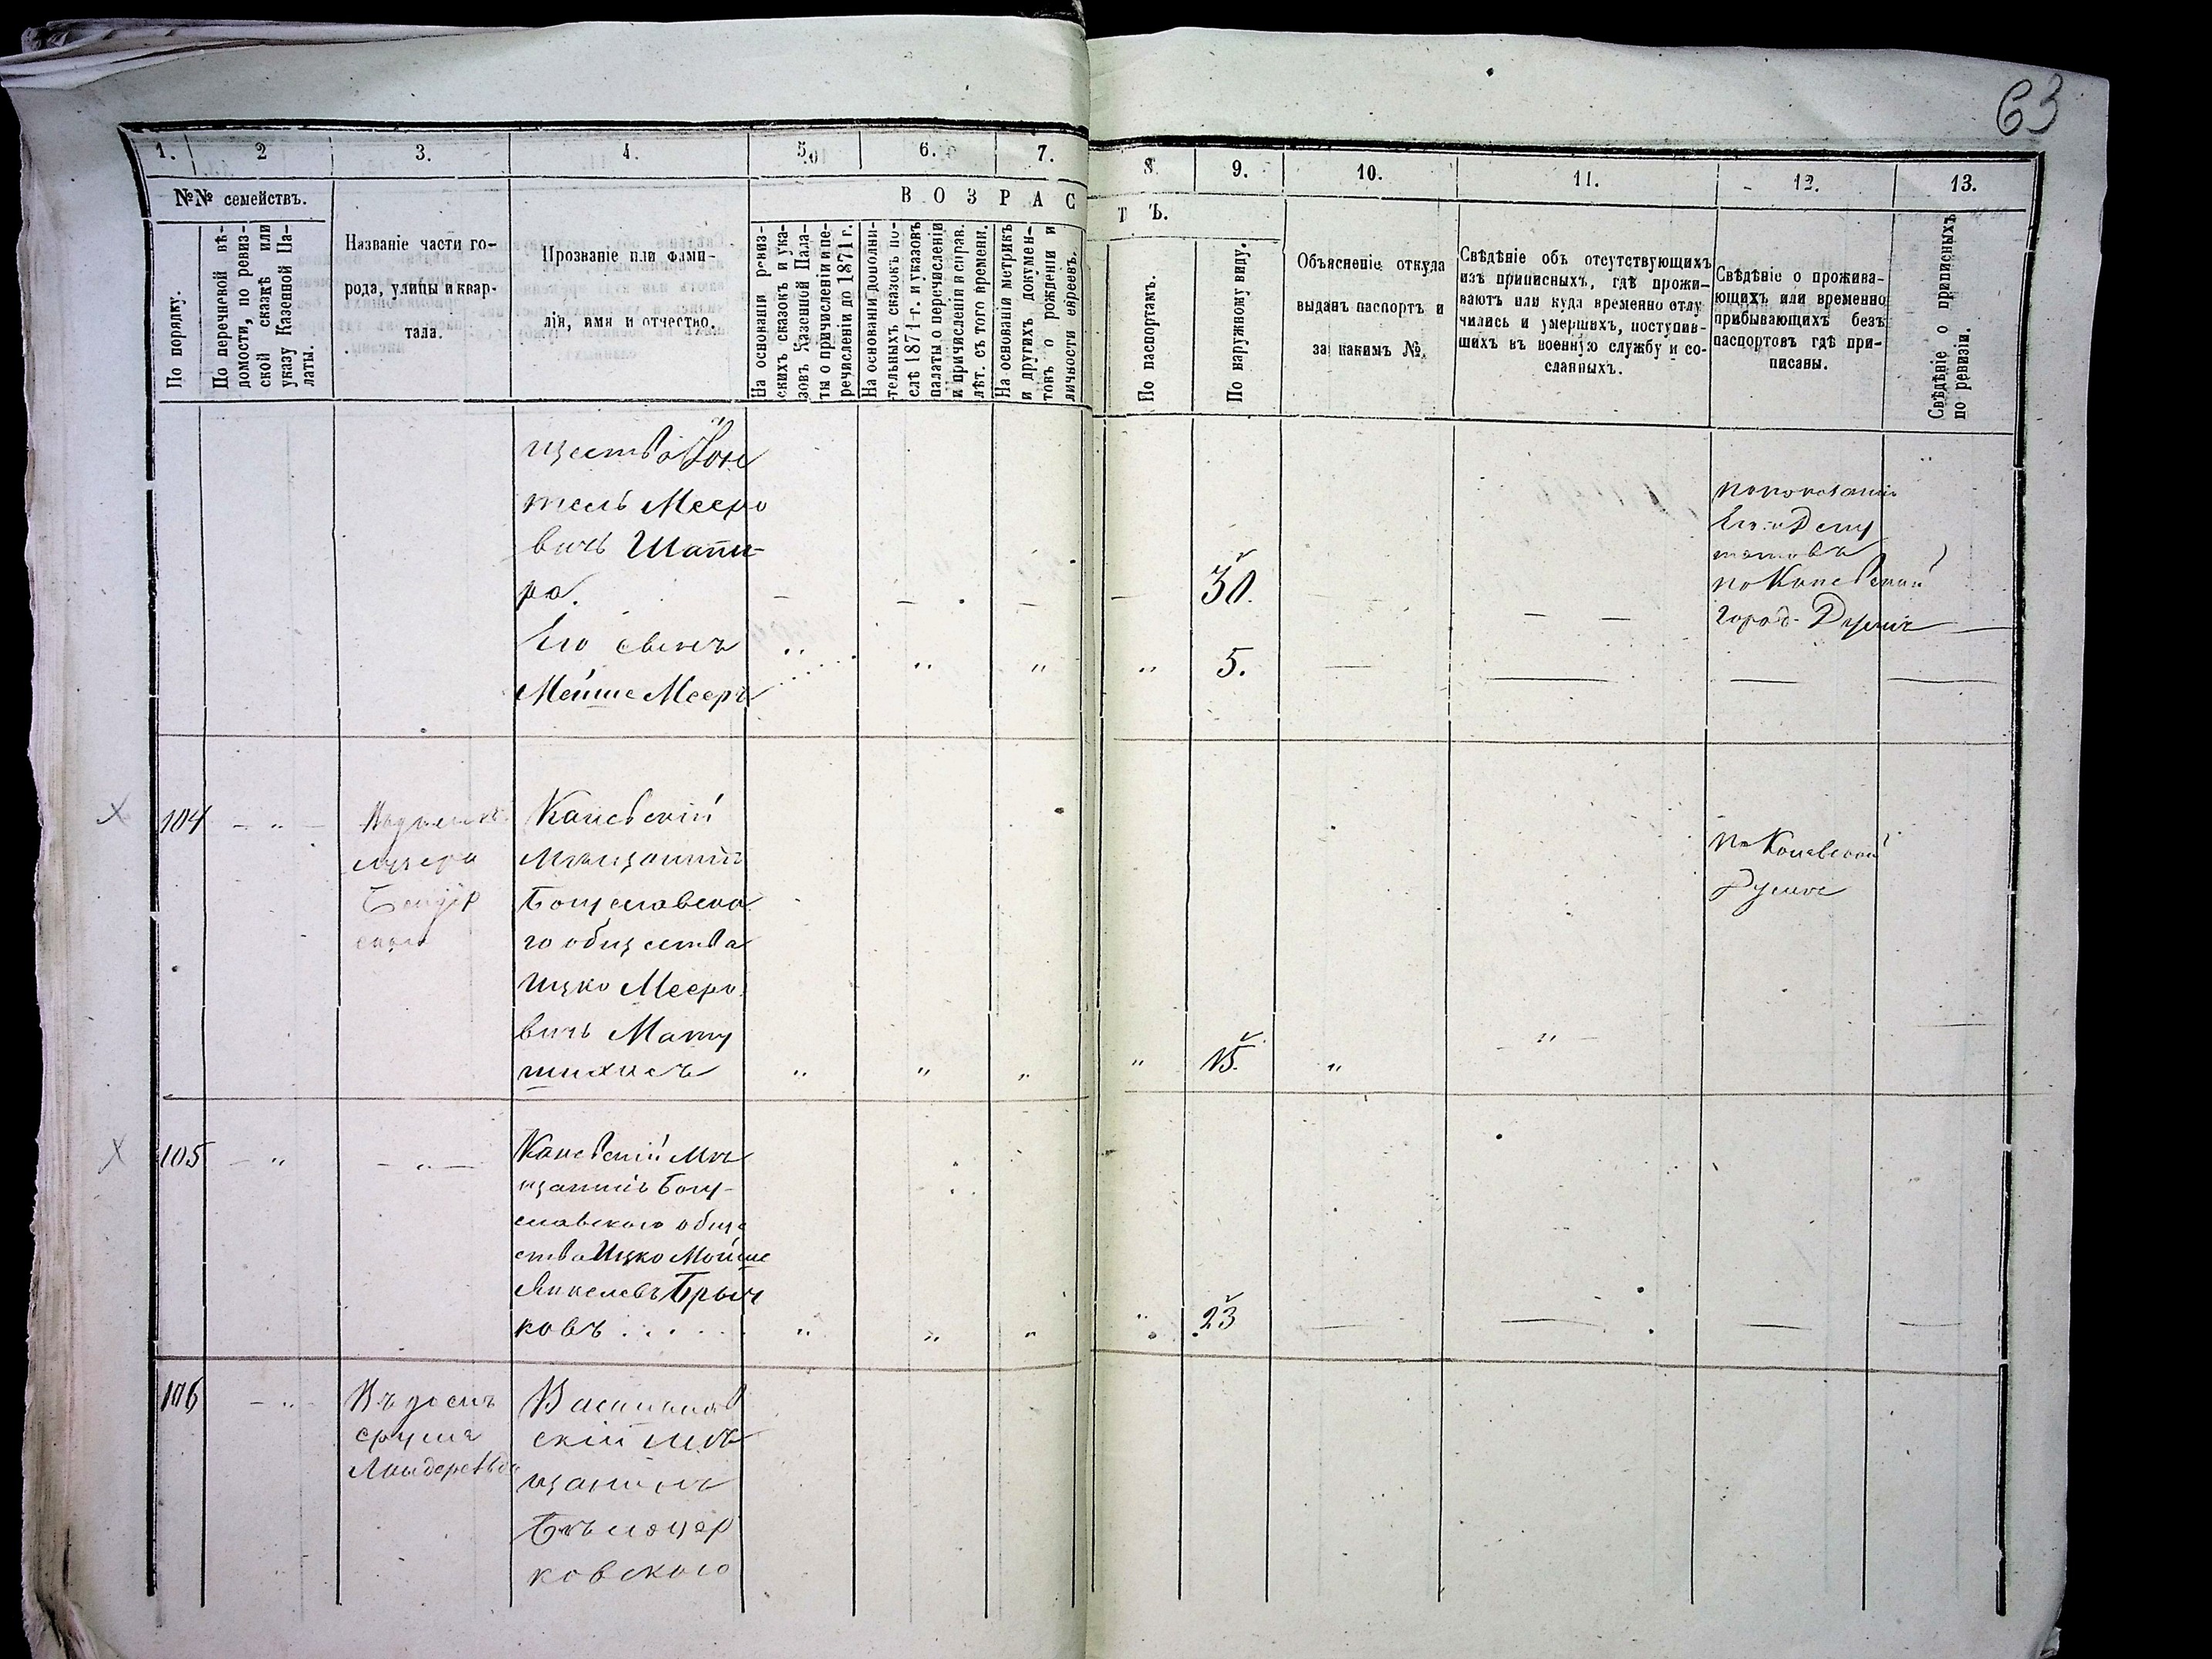 63
1. 2 3. 4. 5. 6. 7. 8. 9. 10. 11. 12. 13.
№№ семействъ.
По порядку.
По перечневой вѣ-
домости, по ревиз-
ской сказкѣ или
указу Казенной Па-
латы.
Названіе части го-
рода, улицы и квар-
тала.
Прозваніе или фами-
лія, имя и отчество.
ВОЗРАСТЪ.
На основаніи ревиз-
скихъ сказокъ и ука-
зовъ Казенной Пала-
ты о причисленіи и пе-
речисленіи до 1871 г.
На основаніи дополни-
тельныхъ сказокъ по-
слѣ 1871 г. и указовъ
палаты о перечисленіи
и причисленіи и справ.
лѣт. съ того времени.
На основаніи метрикъ
и другихъ докумен-
товъ о рожденіи и
личности евреевъ.
По паспортамъ.
По наружному виду.
Объясненіе откуда
выданъ паспортъ и
за какимъ №.
Свѣдѣніе объ отсутствующихъ
изъ приписныхъ, гдѣ прожи-
ваютъ или куда временно отлу
чились и умершихъ, поступив-
шихъ въ военную службу и со-
сланныхъ.
Свѣдѣніе о прожива-
ющихъ или временно
прибывающихъ безъ
паспортовъ гдѣ при-
писаны.
Свѣдѣніе о приписныхъ
по ревизіи.
щества
тель Мееро
вичъ Шапи-
ра. 30.
Его сынъ
Мейше Мееръ 5.
по Каневской
город. Думѣ
104 Каневскій
Мѣщанинъ
Богуславска
го общества
Ицко Мееро
вичъ Мату
15.
по Каневской
Думѣ
105 Каневскій Мѣ
щанинъ Богу-
славского обще
ства Ицко Мойше
Янкелевъ Брыч
ковъ . . . . . 23
106 Въ домѣ
Сруля
Васильков
скій мѣ
щанинъ
Бѣлоцер
ковского